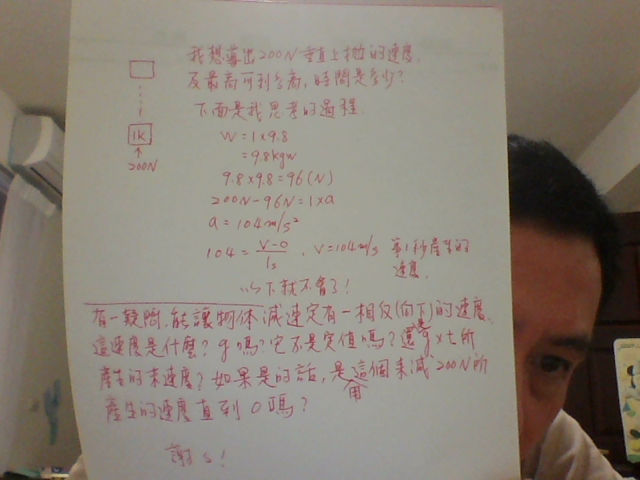 我想算出200N垂直上拋的速度,
及最高可到多高,時間是多少?
下面是我思考的過程.
1K
↑
200N
W = 1×9.8
= 9.8kgw
9.8×9.8=96(N)
200N-96N=1×a
a=104m/s²
104=V-0/1s , V=104m/s 第1秒產生的
速度.
以下就不會了!
有一疑問,能讓物体減速定有一相反(向下)的速度,
這速度是什麼? g嗎?它不是定值嗎?還是g×t所
產生的末速度?如果是的話,是用這個來減200N所
產生的速度直到0嗎?
謝謝!